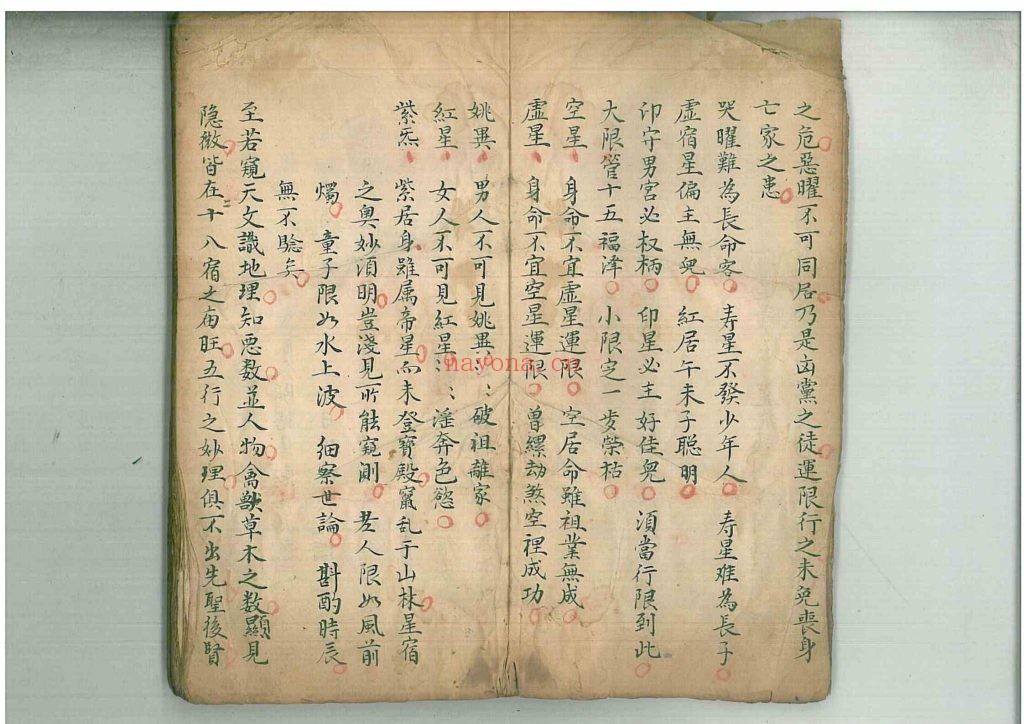 之危惡曜不可同居乃是凶黨之徒運限行之未免喪身
亡家之患
哭曜難為長命客 寿星不發少年人 寿星难為長子
虛宿星偏主無兒 紅居午未子聰明
印守男宮必权柄 印星必主好佳兒 須當行限到此
大限管十五福泽 小限定一步榮枯
空星 身命不宜虛星運限 空居命雖祖業無成
虛星 身命不宜空星運限 曾縲劫煞空裡成功
姚異 男人不可見姚異 破祖離家
紅星 女人不可見紅星 淫奔色慾
紫炁 紫居身雖属帝星而未登寶殿竄乱于山林星宿
之奥妙須明豈淺見所能窺測 老人限如風前
燭 童子限如水上波 細察世論 斟酌時辰
無不驗矣
至若窺天文識地理知悪数並人物禽獸草木之数顯見
隐微皆在十八宿之庙旺五行之妙理俱不出先聖後賢
nayona.cn